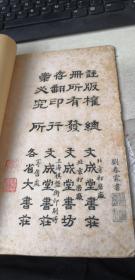 劉春霖書
總發行所
版權所有翻印必究
註冊存案
文成堂書莊
文成堂書坊
文成堂書莊
各省大書莊